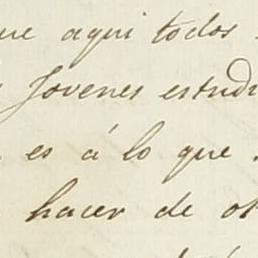 que aqui todos
Jovenes estudi
es á lo que
hacer de ot